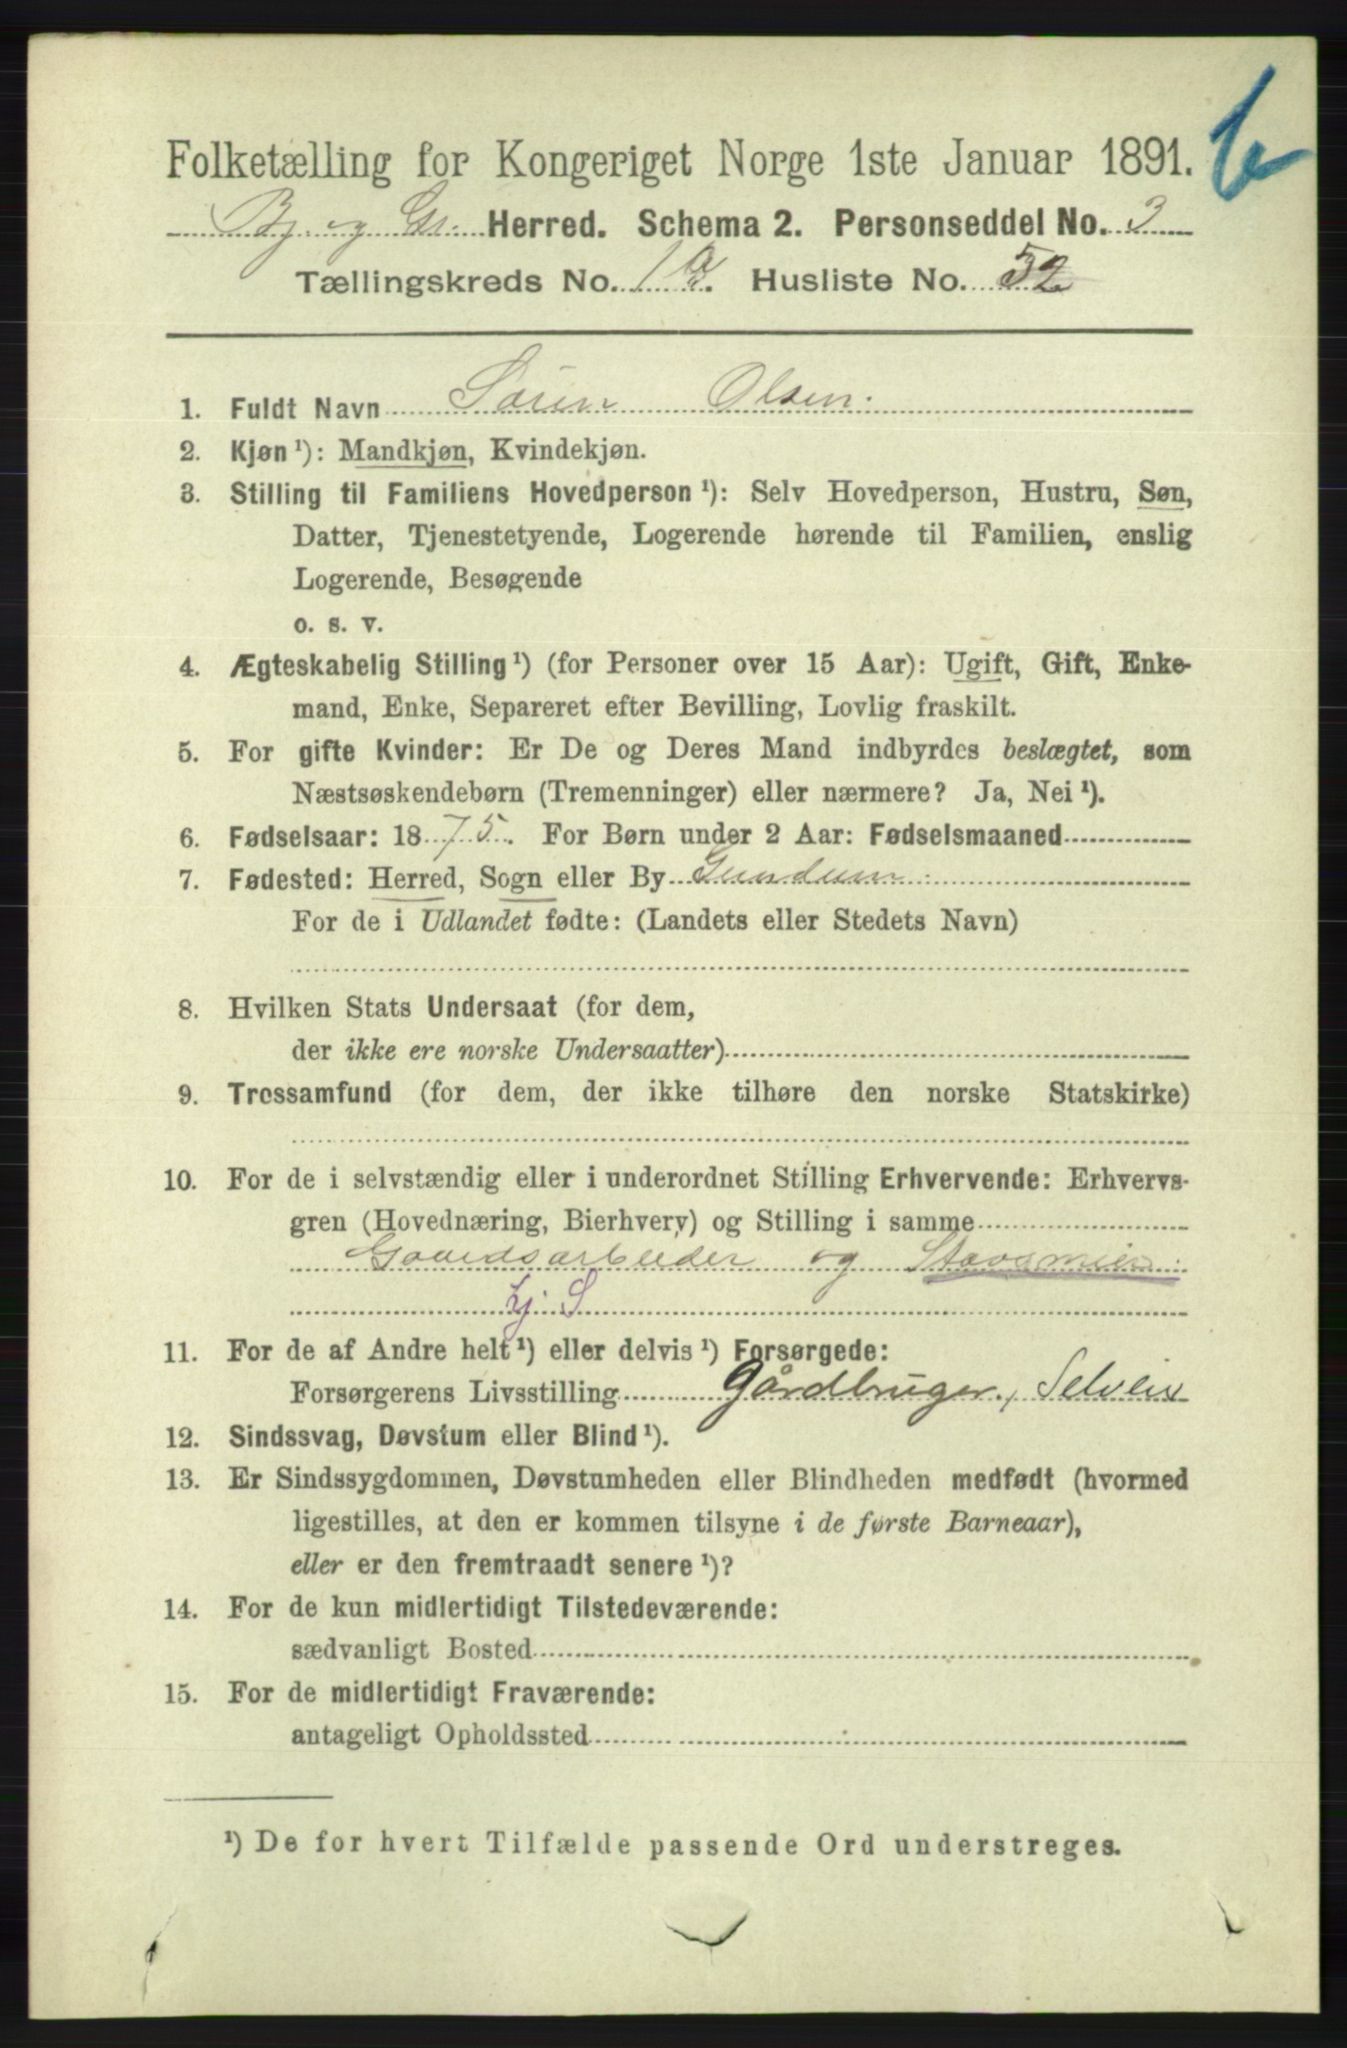 Folketælling for Kongeriget Norge 1ste Januar 1891.
Bj. og Gr. Herred. Schema 2. Personseddel No. 3
Tællingskreds No. 1a. Husliste No. 52
1. Fuldt Navn Søren Olsen.
2. Kjøn ¹): Mandkjøn, Kvindekjøn.
3. Stilling til Familiens Hovedperson ¹): Selv Hovedperson, Hustru, Søn,
Datter, Tjenestetyende, Logerende hørende til Familien, enslig
Logerende, Besøgende
o. s. v.
4. Ægteskabelig Stilling ¹) (for Personer over 15 Aar): Ugift, Gift, Enke-
mand, Enke, Separeret efter Bevilling, Lovlig fraskilt.
5. For gifte Kvinder: Er De og Deres Mand indbyrdes beslægtet, som
Næstsøskendebørn (Tremenninger) eller nærmere? Ja, Nei ¹).
6. Fødselsaar: 1875. For Børn under 2 Aar: Fødselsmaaned
7. Fødested: Herred, Sogn eller By
For de i Udlandet fødte: (Landets eller Stedets Navn)
8. Hvilken Stats Undersaat (for dem,
der ikke ere norske Undersaatter)
9. Trossamfund (for dem, der ikke tilhøre den norske Statskirke)
10. For de i selvstændig eller i underordnet Stilling Erhvervende: Erhvervs-
gren (Hovednæring, Bierhverv) og Stilling i samme
Gaardsarbeider og
Lj. S
11. For de af Andre helt ¹) eller delvis ¹) Forsørgede:
Forsørgerens Livsstilling Gårdbruger, Selveier
12. Sindssvag, Døvstum eller Blind ¹).
13. Er Sindssygdommen, Døvstumheden eller Blindheden medfødt (hvormed
ligestilles, at den er kommen tilsyne i de første Barneaar),
eller er den fremtraadt senere ¹)?
14. For de kun midlertidigt Tilstedeværende:
sædvanligt Bosted
15. For de midlertidigt Fraværende:
antageligt Opholdssted
¹) De for hvert Tilfælde passende Ord understreges.